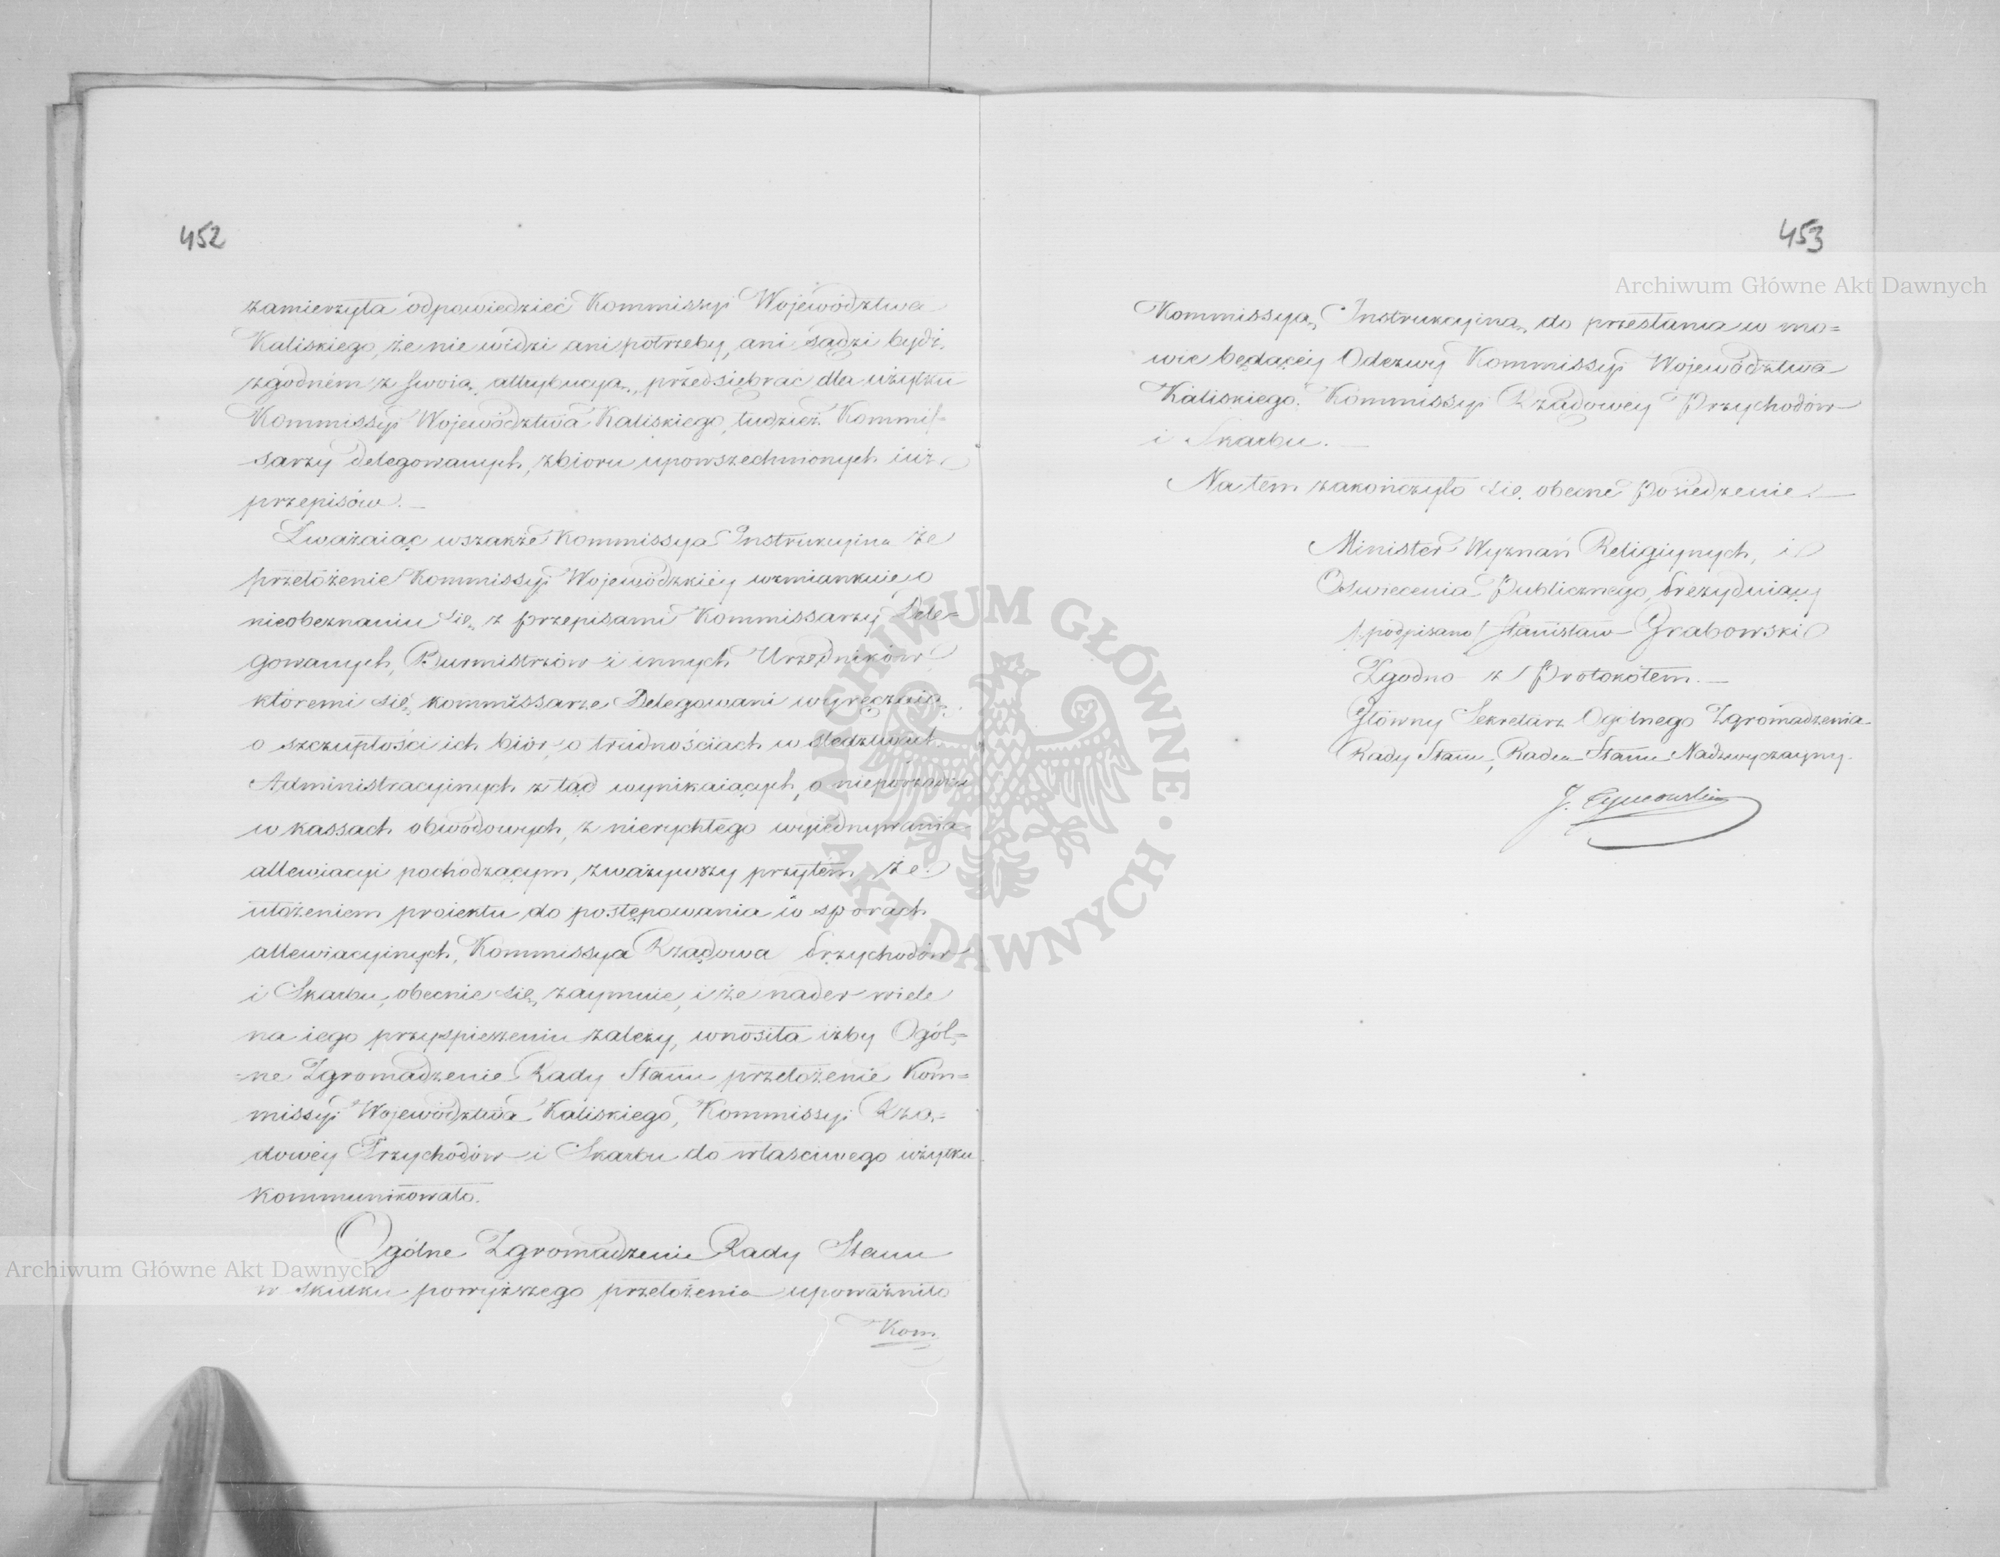 452
zamierzyła odpowiedzieć Kommissyi Województwa
Kaliskiego, że nie widzi ani potrzeby, ani sądzi bydź
zgodném z swoią attrybucyą, przedsiębrać dla użytku
Kommissyi Województwa Kaliskiego, tudzież Kommis-
sarzy delegowanych, zbioru upowszechnionych iuż
przepisów. —
Zważaiąc wszakże Kommissya Instrukcyina że
przełożenie Kommissyi Wojewódzkiéy wzmiankuie o
nieobeznaniu się z przepisami Kommissarzy Dele-
gowanych, Burmistrzów i innych Urzędników
któremi się kommissarze Delegowani wyręczaią,
o szczupłości ich biór, o trudnościach w śledztwach
Administracyinych z tąd wynikaiących, o nieporządku
w kassach obwodowych, z nierychłego wyiednywania
allewiacyi pochodzącym, zważywszy przytém że
ułożeniem proiektu do postępowania w sporach
allewiacyinych, Kommissya Rządowa Przychodów
i Skarbu, obecnie się zaymuie, i że nader wiele
na iego przyspieszeniu zależy, wnosiła iżby Ogól=
=ne Zgromadzenie Rady Stanu przełożenie Kom=
missyi Województwa Kaliskiego, Kommissyi Rzą=
dowéy Przychodów i Skarbu do właściwego użytku
kommunikowało.
Ogólne Zgromadzenie Rady Stanu
w skutku powyższego przełożenia upoważniło
Kom
453
Kommissyą Instrukcyiną do przesłania w mo=
wie będącéy Odezwy Kommissyi Województwa
Kaliskiego Kommissyi Rządowéy Przychodów
i Skarbu. —
Na tém zakończyło się obecne Posiedzenie. —
Minister Wyznań Religiynych, i
Oświecenia Publicznego, Prezyduiący
/podpisano/ Stanisław Grabowski
Zgodno z Protokołem. —
Główny Sekretarz Ogólnego Zgromadzenia
Rady Stanu, Radca Stanu Nadzwyczayny.
J. Tymowski
Archiwum Główne Akt Dawnych
Archiwum Główne Akt Dawnych
ARCHIWUM GŁÓWNE · AKT DAWNYCH ·